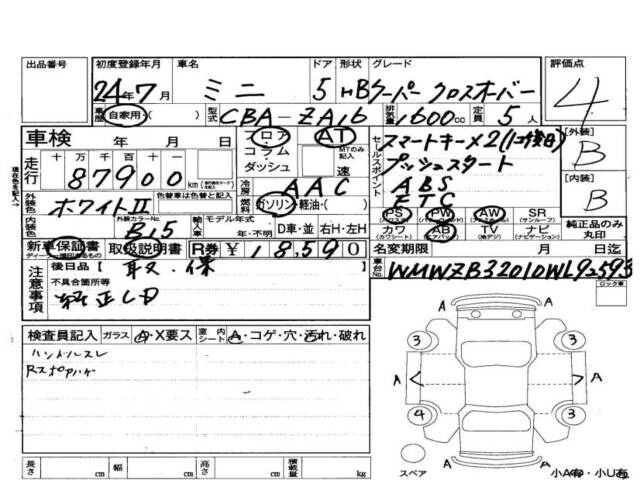 出品番号 初度登録年月 車名 ドア 形状 グレード 評価点
24年7月 ミニ 5 HB クーパー クロスオーバー 4
車歴 自家用・( ) 型式 CBA-ZA16 排気量 1600cc 定員 5人
車検 年 月 日 フロア AT スマートキー×2(1ケ後日) [外装]
コラム MTのみ記入 プッシュスタート B
ダッシュ 速 セールスポイント ABS [内装]
走行 十万千百十一 87900km 冷房 AAC ETC B
外装色 ホワイトII 色替車は色替と記入 燃料 ガソリン・軽油・( ) PS PW AW SR(サンルーフ)
内装色 外装カラーNo. B15 輸入車 モデル年式 年・不明 D車・並 右H・左H カワ(カワシート) AB(エアバック) TV(地デジ) ナビ(ナビゲーション) 純正品のみ丸印
新車保証書 取扱説明書 R券 ¥18,590 名変期限 月 日迄
注意事項 後日品 取・保 車台No. WMWZB32010WL92593
不具合箇所等 ロック車
純正CD
検査員記入 ガラス A・X要ス 室内シート A・コゲ・穴・汚れ・破れ
ハンドルスレ
A
3 3
A A
4 3
A
スペア 小A有・小U有
長さ cm 幅 cm 高さ cm 積載量 kg